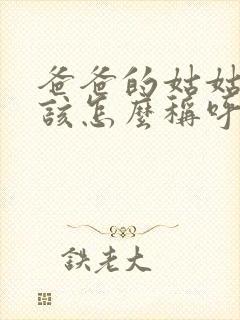 爸爸的姑姑
該怎麼稱呼
鉄老大